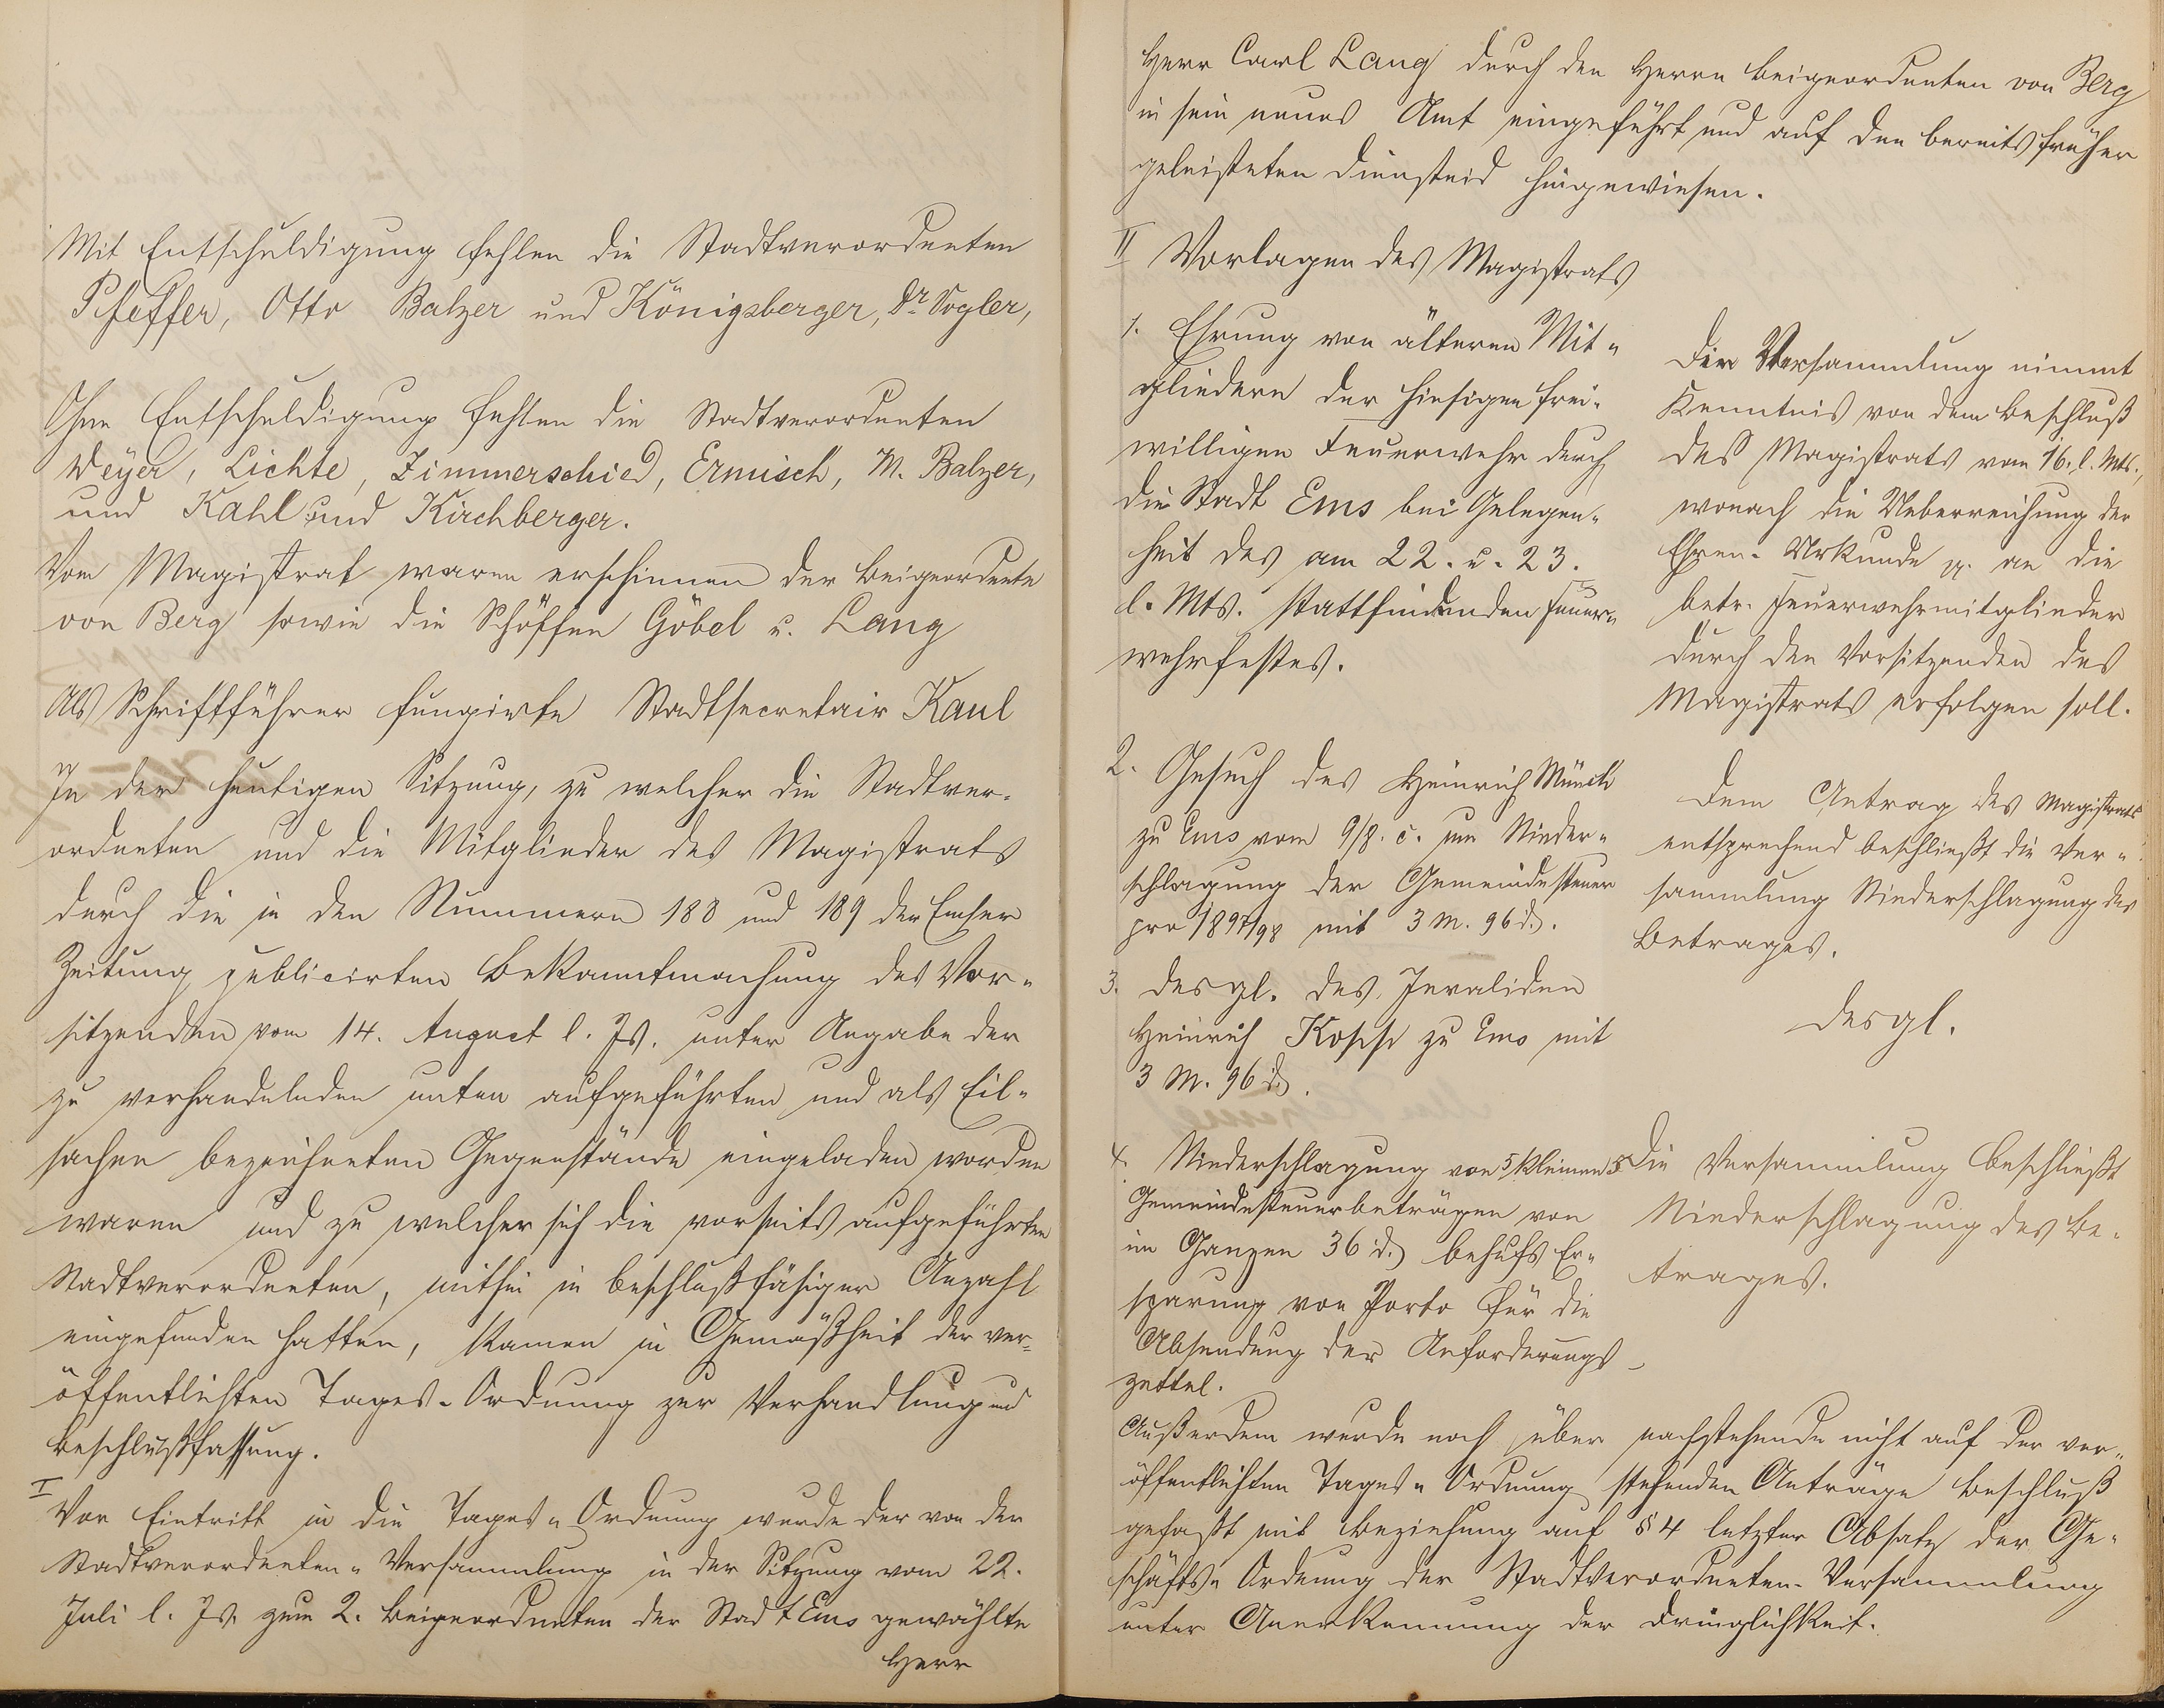 Mit Entschuldigung fehlen die Stadtverordneten
Pfeffer, Otto Balzer und Königsberger, Dr. Vogler,
Ohne Entschuldigung fehlen die Stadtverordneten
Weyer, Lichte, Zimmerschied, Ermisch, W. Balzer,
und Kahl und Kirchberger.
Vom Magistrat waren erschienen der Beigeordnete
von Berg sowie die Schöffen Göbel u. Lang
Als Schriftführer fungirte Stadtsecretair Kaul
In der heutigen Sitzung, zu welcher die Stadtver-
ordneten und die Mitglieder des Magistrats
durch die in den Nummern 188 und 189 der Emser
Zeitung publicirten Bekanntmachung des Vor-
sitzenden vom 14. August l. Js. unter Angabe der
zu verhandelnden unten aufgeführten und als Eil-
sachen bezeichneten Gegenstände eingeladen worden
waren und zu welcher sich die vorseits aufgeführten
Stadtverordneten, mithin in beschlußfähiger Anzahl
eingefunden hatten, kamen in Gemäßheit der ver-
öffentlichten Tages-Ordnung zur Verhandlung und
Beschlußfassung.
I
Vor Eintritt in die Tages-Ordnung wurde der von der
Stadtverordneten-Versammlung in der Sitzung vom 22.
Juli l. Js. zum 2. Beigeordneten der Stadt Ems gewählte
Herr
Herr Carl Lang durch den Herrn Beigeordneten von Berg
in sein neues Amt eingeführt und auf den bereits früher
geleisteten Diensteid hingewiesen.
II Vorlagen des Magistrats
1. Ehrung von älteren Mit-
gliedern der hiesigen frei-
willigen Feuerwehr durch
die Stadt Ems bei Gelegen-
heit des am 22. u. 23.
l. Mts. stattfindenden Feuer-
wehrfestes.
Die Versammlung nimmt
Kenntnis von dem Beschluß
des Magistrats vom 16. l. Mts.,
wonach die Ueberreichung der
Ehren-Urkunde pp. an die
betr. Feuerwehrmitglieder
durch den Vorsitzenden des
Magistrats erfolgen soll.
2. Gesuch des Heinrich Münch
zu Ems vom 9/8. c. um Nieder-
schlagung der Gemeindesteuer
pro 1897/98 mit 3 M. 96 d.
Dem Antrag des Magistrats
entsprechend beschließt die Ver-
sammlung Niederschlagung des
Betrages.
3. desgl. des Invaliden
Heinrich Kopp zu Ems mit
3 M. 96 d.
desgl.
4. Niederschlagung von 5 kleinen
Gemeindesteuerbeträgen von
im Ganzen 36 d. behufs Er-
sparung von Porto für die
Absendung der Anforderungs-
zettel.
Die Versammlung beschließt
Niederschlagung des Be-
trages.
Außerdem wurde noch über nachstehende nicht auf der ver-
öffentlichten Tages-Ordnung stehenden Anträge Beschluß
gefaßt mit Beziehung auf § 4 letzter Absatz der Ge-
schäfts-Ordnung der Stadtverordneten-Versammlung
unter Anerkennung der Dringlichkeit.